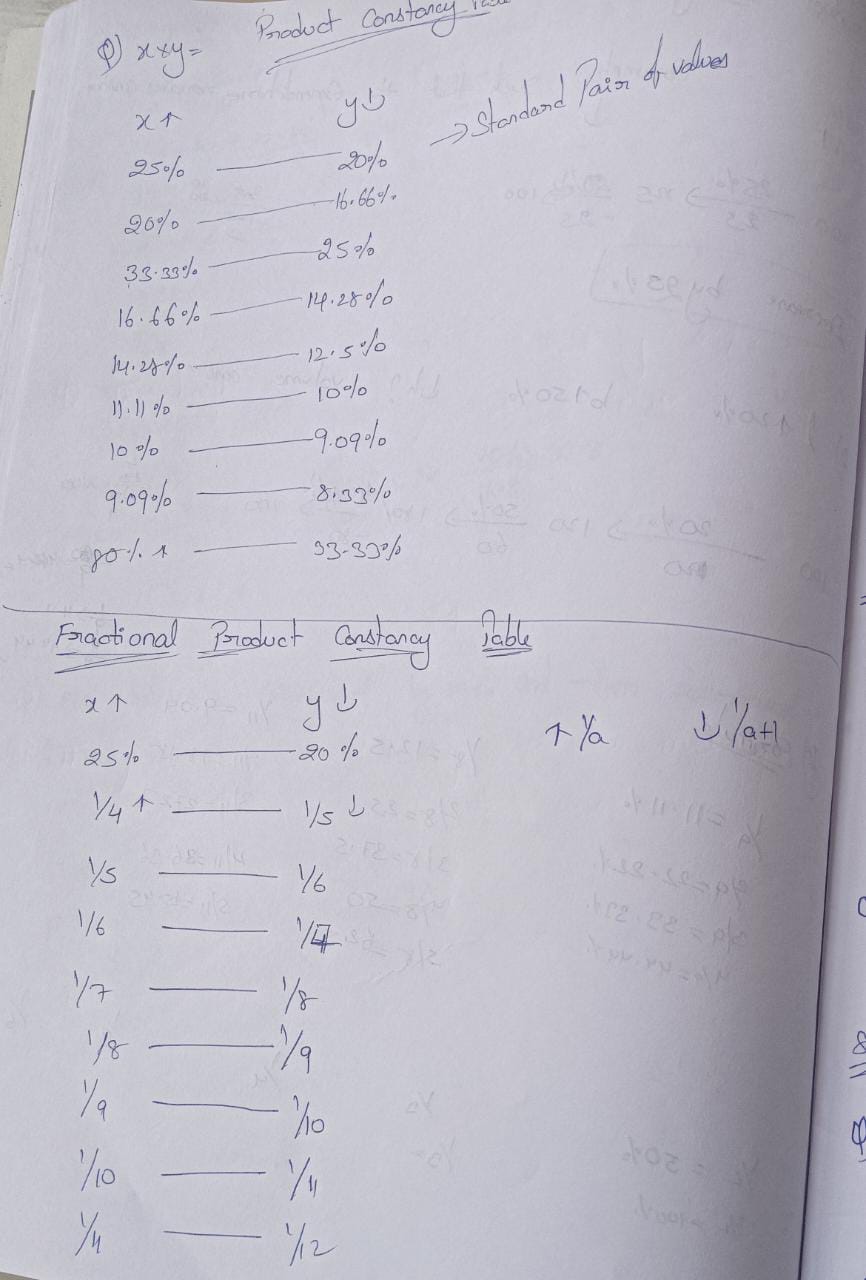 Product Constancy Table
Q) x×y=
x↑ y↓ → Standard Pair of values
25% — 20%
20% — 16.66%
33.33% — 25%
16.66% — 14.28%
14.28% — 12.5%
11.11% — 10%
10% — 9.09%
9.09% — 8.33%
50% ↑ — 33.33%
Fractional Product Constancy Table
x↑ y↓ ↑ 1/a ↓ 1/a+1
25% — 20%
1/4 ↑ — 1/5 ↓
1/5 — 1/6
1/6 — 1/7
1/7 — 1/8
1/8 — 1/9
1/9 — 1/10
1/10 — 1/11
1/11 — 1/12